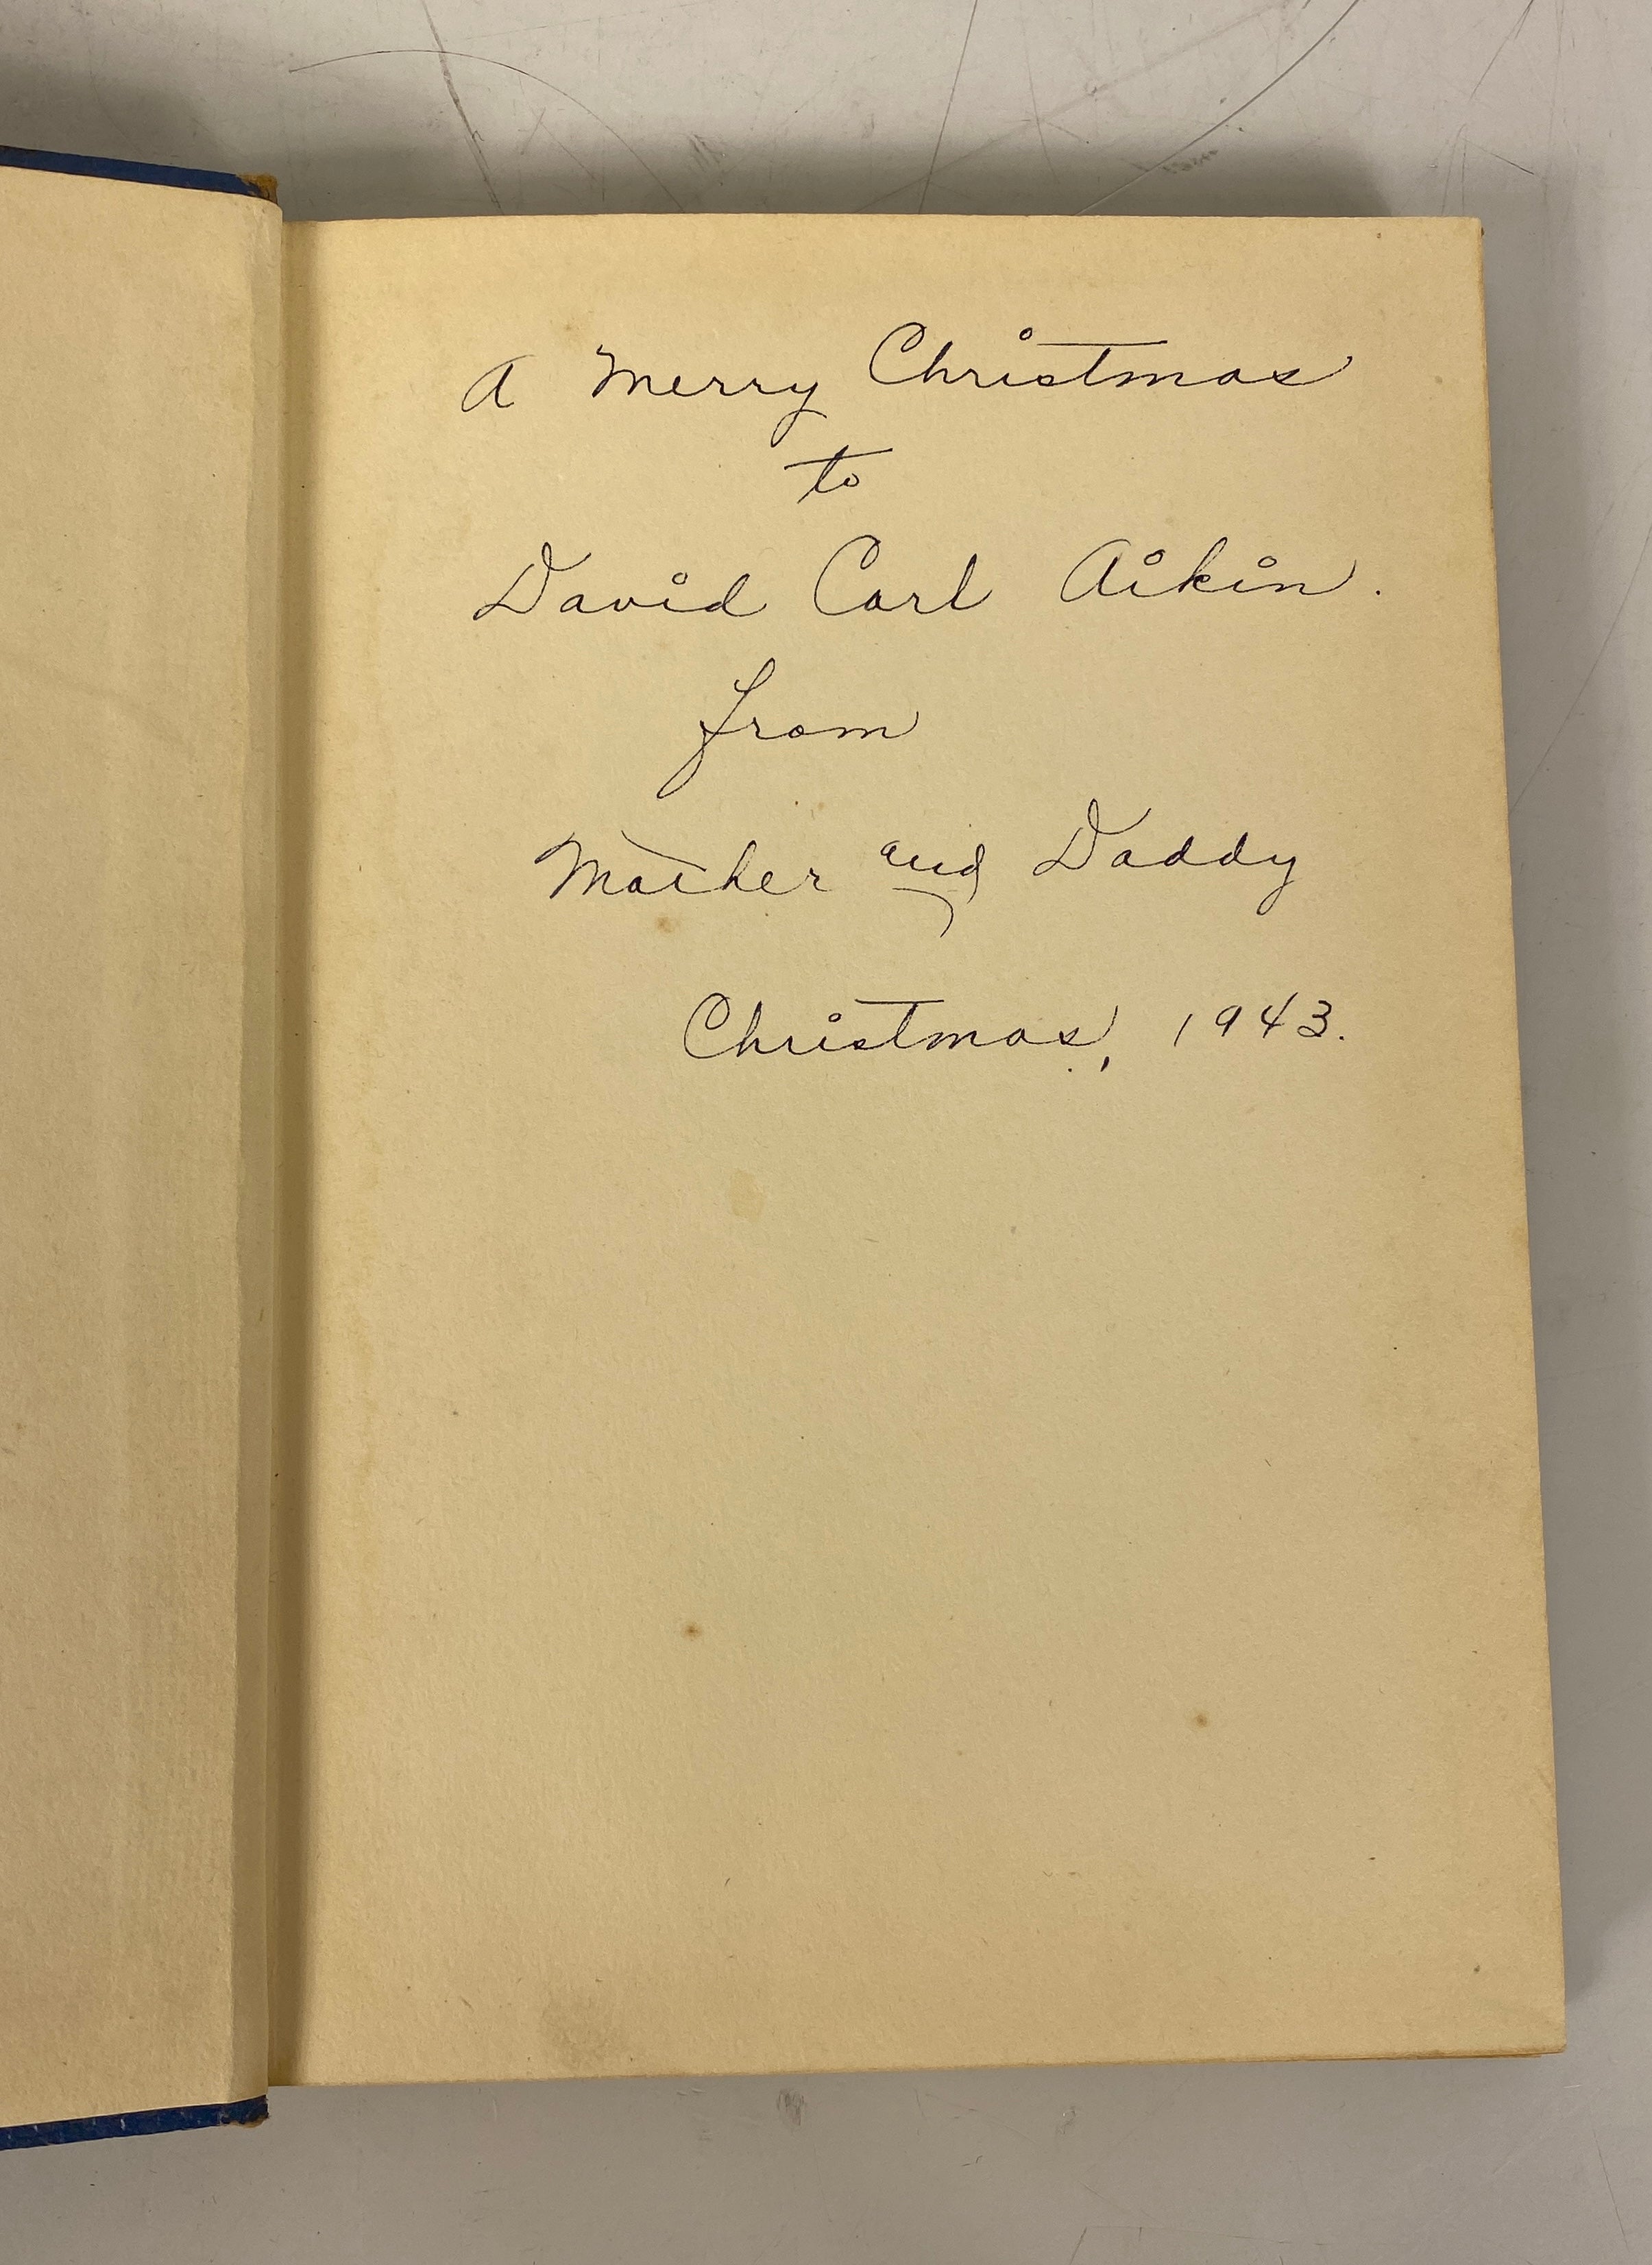 A Merry Christmas
to
David Carl Aikin.
from
Mother and Daddy
Christmas, 1943.